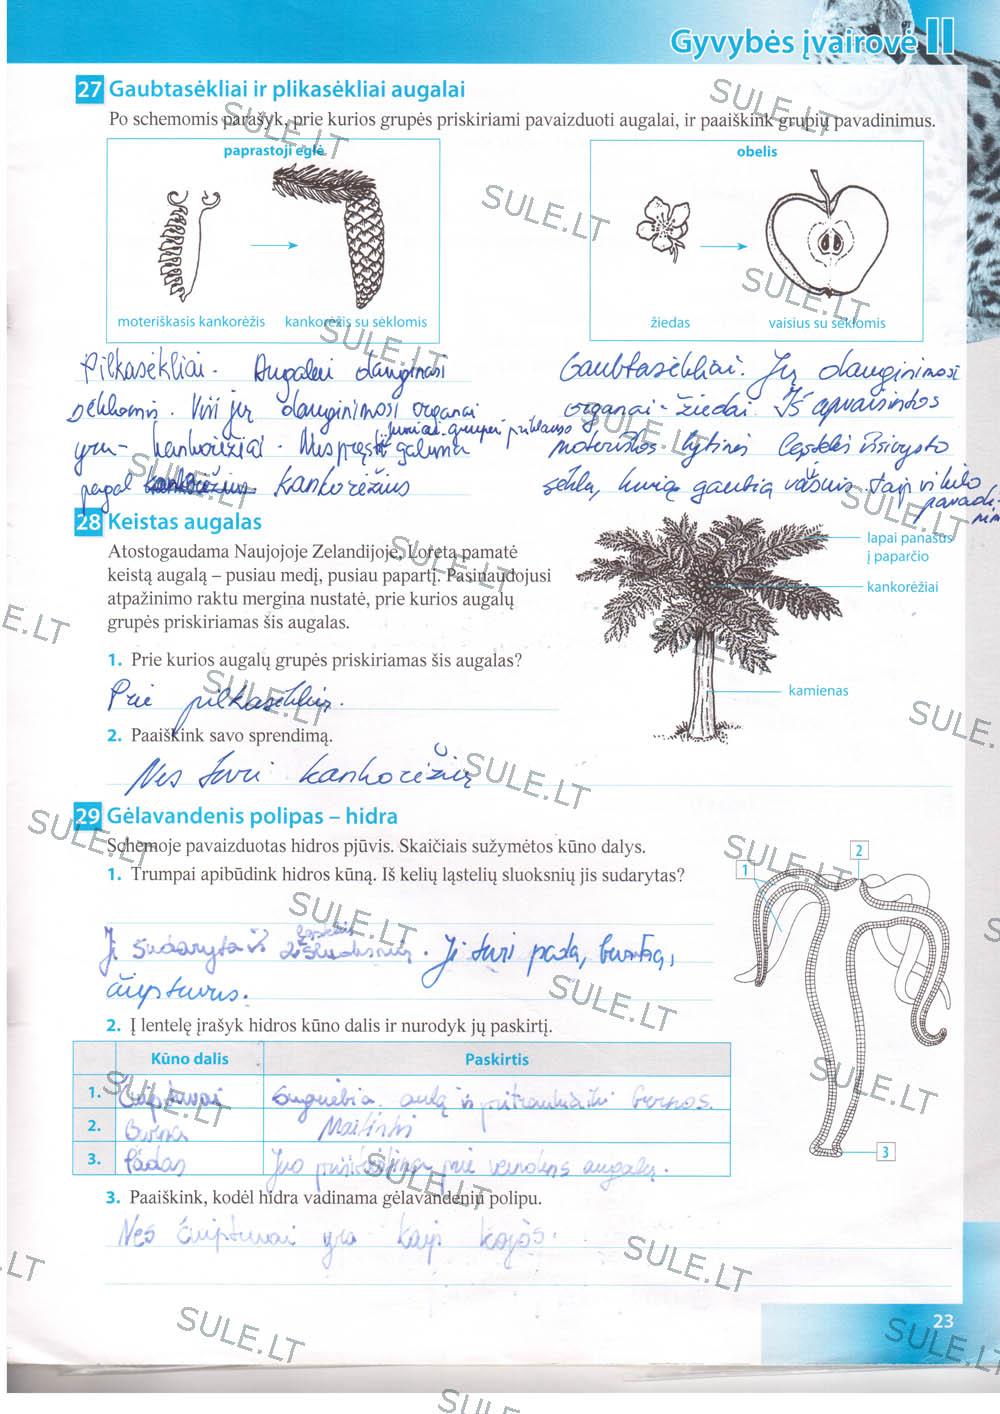 Gyvybės įvairovė II
27 Gaubtasėkliai ir plikasėkliai augalai
Po schemomis parašyk, prie kurios grupės priskiriami pavaizduoti augalai, ir paaiškink grupių pavadinimus.
paprastoji eglė
moteriškasis kankorėžis kankorėžis su sėklomis
obelis
žiedas vaisius su sėklomis
Pilkasėkliai. Augalai dauginasi
sėklomis. Visi jų dauginimosi organai
yra - kankorėžiai. Nuspręsti galima
kuriai grupei priklauso
pagal kankorėžius kankorėžius
Gaubtasėkliai. Jų dauginimosi
organai - žiedai. Iš apvaisintos
moteriškos lytinės ląstelės išsivysto
sėkla, kurią gaubia vaisius. Taip ir kilo
pavadi-
nim
28 Keistas augalas
Atostogaudama Naujojoje Zelandijoje, Loreta pamatė
keistą augalą – pusiau medį, pusiau papartį. Pasinaudojusi
atpažinimo raktu mergina nustatė, prie kurios augalų
grupės priskiriamas šis augalas.
lapai panašūs
į paparčio
kankorėžiai
kamienas
1. Prie kurios augalų grupės priskiriamas šis augalas?
Prie pilkasėklių.
2. Paaiškink savo sprendimą.
Nes turi kankorėžių
29 Gėlavandenis polipas – hidra
Schemoje pavaizduotas hidros pjūvis. Skaičiais sužymėtos kūno dalys.
1. Trumpai apibūdink hidros kūną. Iš kelių ląstelių sluoksnių jis sudarytas?
Ji sudaryta iš 2 ląstelių sluoksnių. Ji turi padą, burną,
čiuptuvus.
2. Į lentelę įrašyk hidros kūno dalis ir nurodyk jų paskirtį.
Kūno dalis Paskirtis
1. Čiuptuvai auką ir pritraukia iki burnos.
2. Burna Maitintis
3. Padas Juo prisitvirtina prie vandens augalų.
3. Paaiškink, kodėl hidra vadinama gėlavandeniu polipu.
Nes čiuptuvai yra kaip kojos.
1
2
3
23
SULE.LT